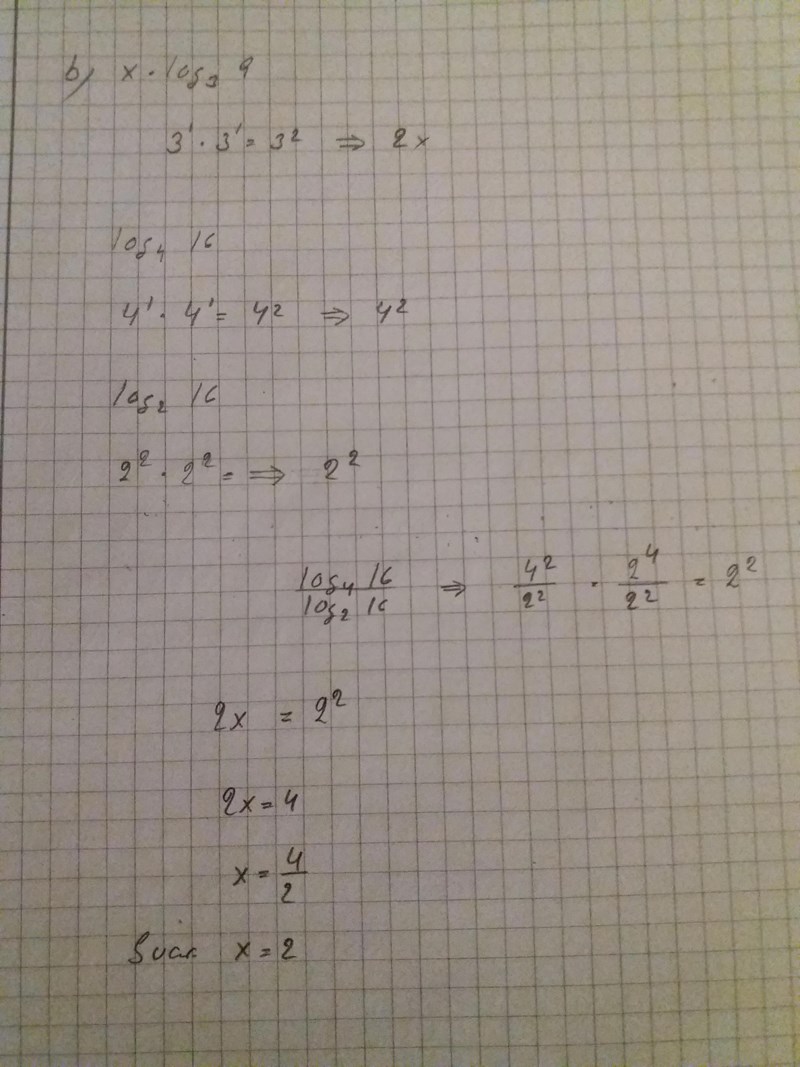 b) x · log₃ 9
3¹ · 3¹ = 3² ⇒ 2x
log₄ 16
4¹ · 4¹ = 4² ⇒ 4²
log₂ 16
2² · 2² = ⇒ 2²
log₄ 16 / log₂ 16 ⇒ 4²/2² · 2⁴/2² = 2²
2x = 2²
2x = 4
x = 4/2
Svar x = 2